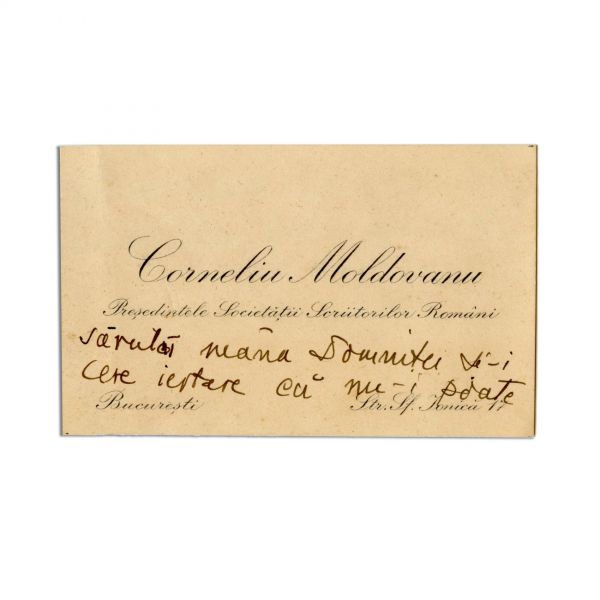 Corneliu Moldovanu
Președintele Societății Scriitorilor Români
sărută mâna Domniței și-i
cere iertare că nu-i poate
București Str. Sf. Ionică 17